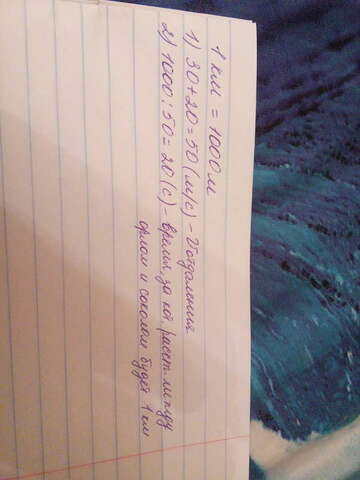 1 км = 1000 м
1) 30+20=50 (м/с) - V отдаления
2) 1000:50=20 (с) - время, за кот. расст. между
орлом и соколом будет 1 км